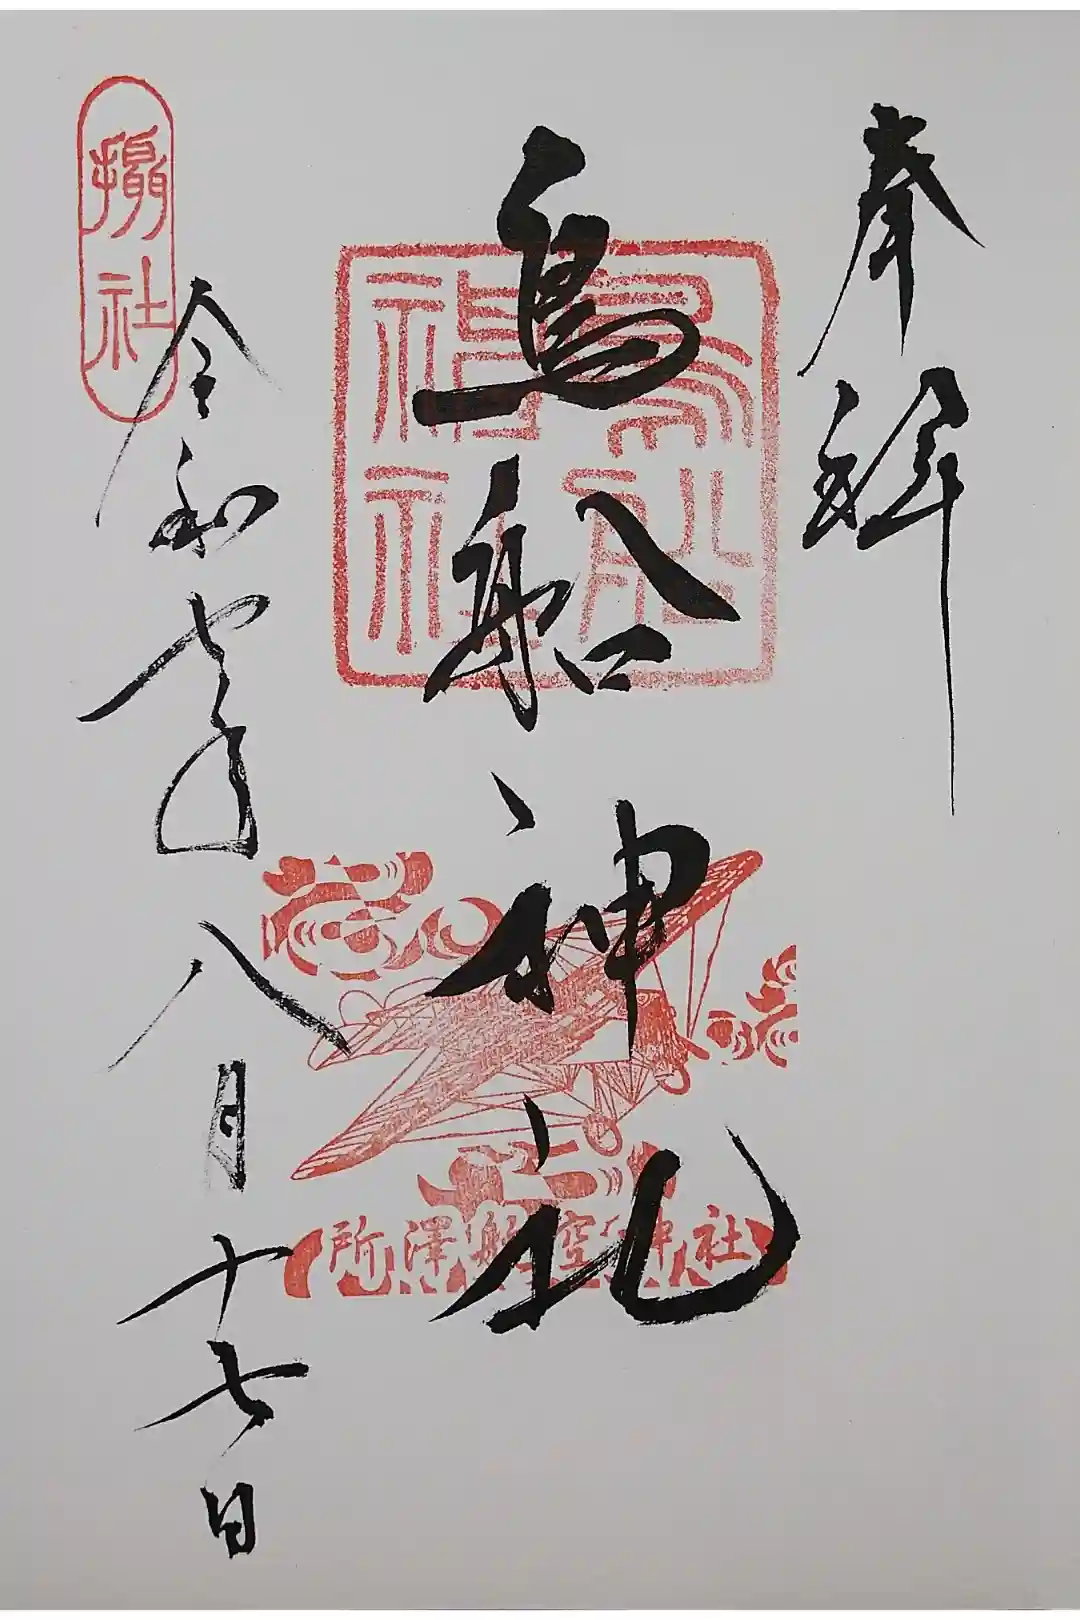 奉拝
鳥船神社
鳥船神社
所澤航空神社
令和七年八月十七日
摂社